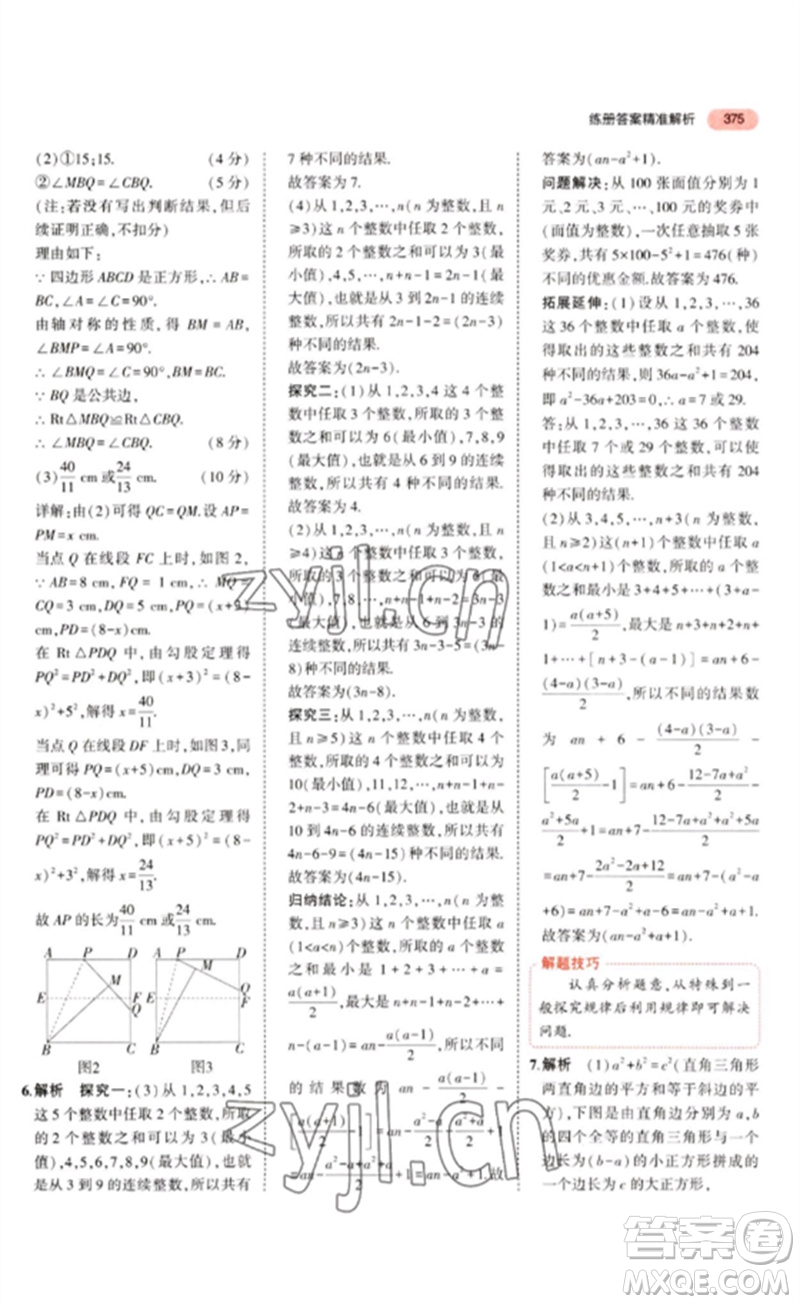 练册答案精准解析 375
(2)①15;15. (4分)
②∠MBQ=∠CBQ. (5分)
(注:若没有写出判断结果,但后
续证明正确,不扣分)
理由如下:
∵四边形 ABCD 是正方形,
∴AB=BC,∠A=∠C=90°.
由轴对称的性质,得 BM=AB,
∠BMP=∠A=90°.
∴∠BMQ=∠C=90°,BM=BC.
∵BQ 是公共边,
∴Rt△MBQ≌Rt△CBQ.
∴∠MBQ=∠CBQ. (8分)
(3)40/11 cm 或 24/13 cm. (10分)
详解:由(2)可得 QC=QM. 设 AP=
PM=x cm.
当点 Q 在线段 FC 上时,如图2,
∵AB=8 cm,FQ=1 cm,∴MQ=
CQ=3 cm,DQ=5 cm,PQ=(x+3)
cm,PD=(8-x)cm.
在 Rt△PDQ 中,由勾股定理得
PQ²=PD²+DQ²,即(x+3)²=(8-
x)²+5²,解得 x=40/11.
当点 Q 在线段 DF 上时,如图3,同
理可得 PQ=(x+5)cm,PD=(8-
x)cm.
在 Rt△PDQ 中,由勾股定理得
PQ²=PD²+DQ²,即(x+5)²=(8-
x)²+3²,解得 x=24/13.
故 AP 的长为 40/11 cm 或 24/13 cm.
A P D
M
E F
Q
B C
图2
A P D
M
Q
E F
B C
图3
6.解析 探究一:(3)从1,2,3,4,5
这5个整数中任取2个整数,所取的
2个整数之和可以为3(最小
值),4,5,6,7,8,9(最大值),所以
共有3到9的连续整数,所以共有
7种不同的结果.
故答案为7.
(4)从1,2,3,…,n(n为整数,且 n
≥3)这 n 个整数中任取2个整数,
所取的2个整数之和可以为3(最
小值),4,5,…,n+n-1=2n-1(最
大值),也就是从3到2n-1的连续
整数,所以共有2n-1-2=(2n-3)
种不同的结果.
故答案为(2n-3).
探究二:(1)从1,2,3,4这4个整
数中任取3个整数,所取的3个整
数之和可以为6(最小值),7,8,9
(最大值),也就是从6到9的连续
整数,所以共有4种不同的结果.
故答案为4.
(2)从1,2,3,…,n(n为整数,且 n
≥4)这 n 个整数中任取3个整数,
所取的3个整数之和可以为6(最小
值),7,8,…,n+n-1+n-2=3n-3
(最大值),也就是从6到3n-3的
连续整数,所以共有3n-3-5=(3n-
8)种不同的结果.
故答案为(3n-8).
探究三:从1,2,3,…,n(n为整数,
且 n≥5)这 n 个整数中任取4个整
数,所取的4个整数之和可以为
10(最小值),11,12,…,n+n-1+n-
2+n-3=4n-6(最大值),也就是从
10到4n-6的连续整数,所以共有
4n-6-9=(4n-15)种不同的结果.
故答案为(4n-15).
归纳结论:从1,2,3,…,n(n为整
数,且 n≥3)这 n 个整数中任取 a
(1<a<n)个整数,所取的 a 个整数
之和最小是 1+2+3+…+a=
a(a+1)/2,最大是 n+n-1+n-2+…+
n-(a-1)=an-a(a-1)/2,所以不同
的结果数为 an-a(a-1)/2-
[a(a+1)/2-1]=an-(a²-a)/2-(a²+a)/2+1
=an-(a²-a+a²+a)/2+1=an-a²+1. 故
答案为(an-a²+1).
问题解决:从100张面值分别为1
元、2元、3元、…、100元的奖券中
(面值为整数),一次任意抽取5张
奖券,共有5×100-5²+1=476(种)
不同的优惠金额.故答案为476.
拓展延伸:(1)设从1,2,3,…,36
这36个整数中任取 a 个整数,使
得取出的这些整数之和共有204
种不同的结果,根据题意,得
36a-a²+1=204,
即 a²-36a+203=0,∴a=7或29.
答:从1,2,3,…,36这36个整数
中任取7个或29个整数,使得取
出的这些整数之和共有204种不
同的结果.
(2)从3,4,5,…,n+3(n为整数,且
n≥2)这(n+1)个整数中任取 a
(1<a<n+1)个整数,所取的 a 个整
数之和最小是3+4+5+…+(3+a-
1)=a(a+5)/2,最大是 n+3+n+2+n+
1+…+[n+3-(a-1)]=an+6-
(4-a)(3-a)/2,所以不同的结果数
为 an+6-(4-a)(3-a)/2
-[a(a+5)/2-1]=an+6-(12-7a+a²)/2-
(a²+5a)/2+1=an+7-(12-7a+a²+a²+5a)/2
=an+7-(2a²-2a+12)/2=an+7-(a²-a
+6)=an+7-a²+a-6=an-a²+a+1.
故答案为(an-a²+a+1).
解题技巧
认真分析题意,从特殊到一
般探究规律后利用规律即可解决
问题.
7.解析 (1)a²+b²=c²(直角三角形
两直角边的平方和等于斜边的平
方),下图是由直角边分别为 a,b
的四个全等的直角三角形与一个
边长为(b-a)的小正方形拼成的
一个边长为 c 的大正方形,
zyjl.cn
zyjl.cn
答案圈
MXQE.COM